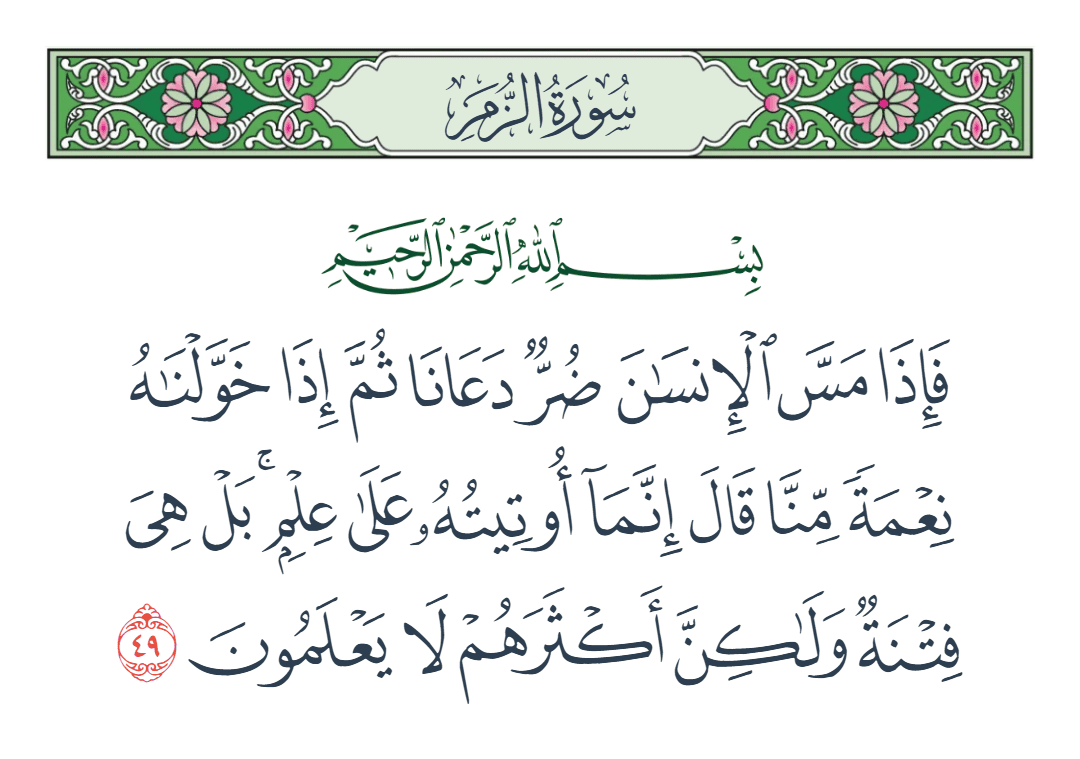 سُورَةُ الزُّمَرِ
بِسْمِ ٱللَّهِ ٱلرَّحْمَٰنِ ٱلرَّحِيمِ
فَإِذَا مَسَّ ٱلْإِنسَـٰنَ ضُرٌّ دَعَانَا ثُمَّ إِذَا خَوَّلْنَـٰهُ
نِعْمَةً مِّنَّا قَالَ إِنَّمَآ أُوتِيتُهُۥ عَلَىٰ عِلْمٍۭ ۚ بَلْ هِىَ
فِتْنَةٌ وَلَـٰكِنَّ أَكْثَرَهُمْ لَا يَعْلَمُونَ ٤٩